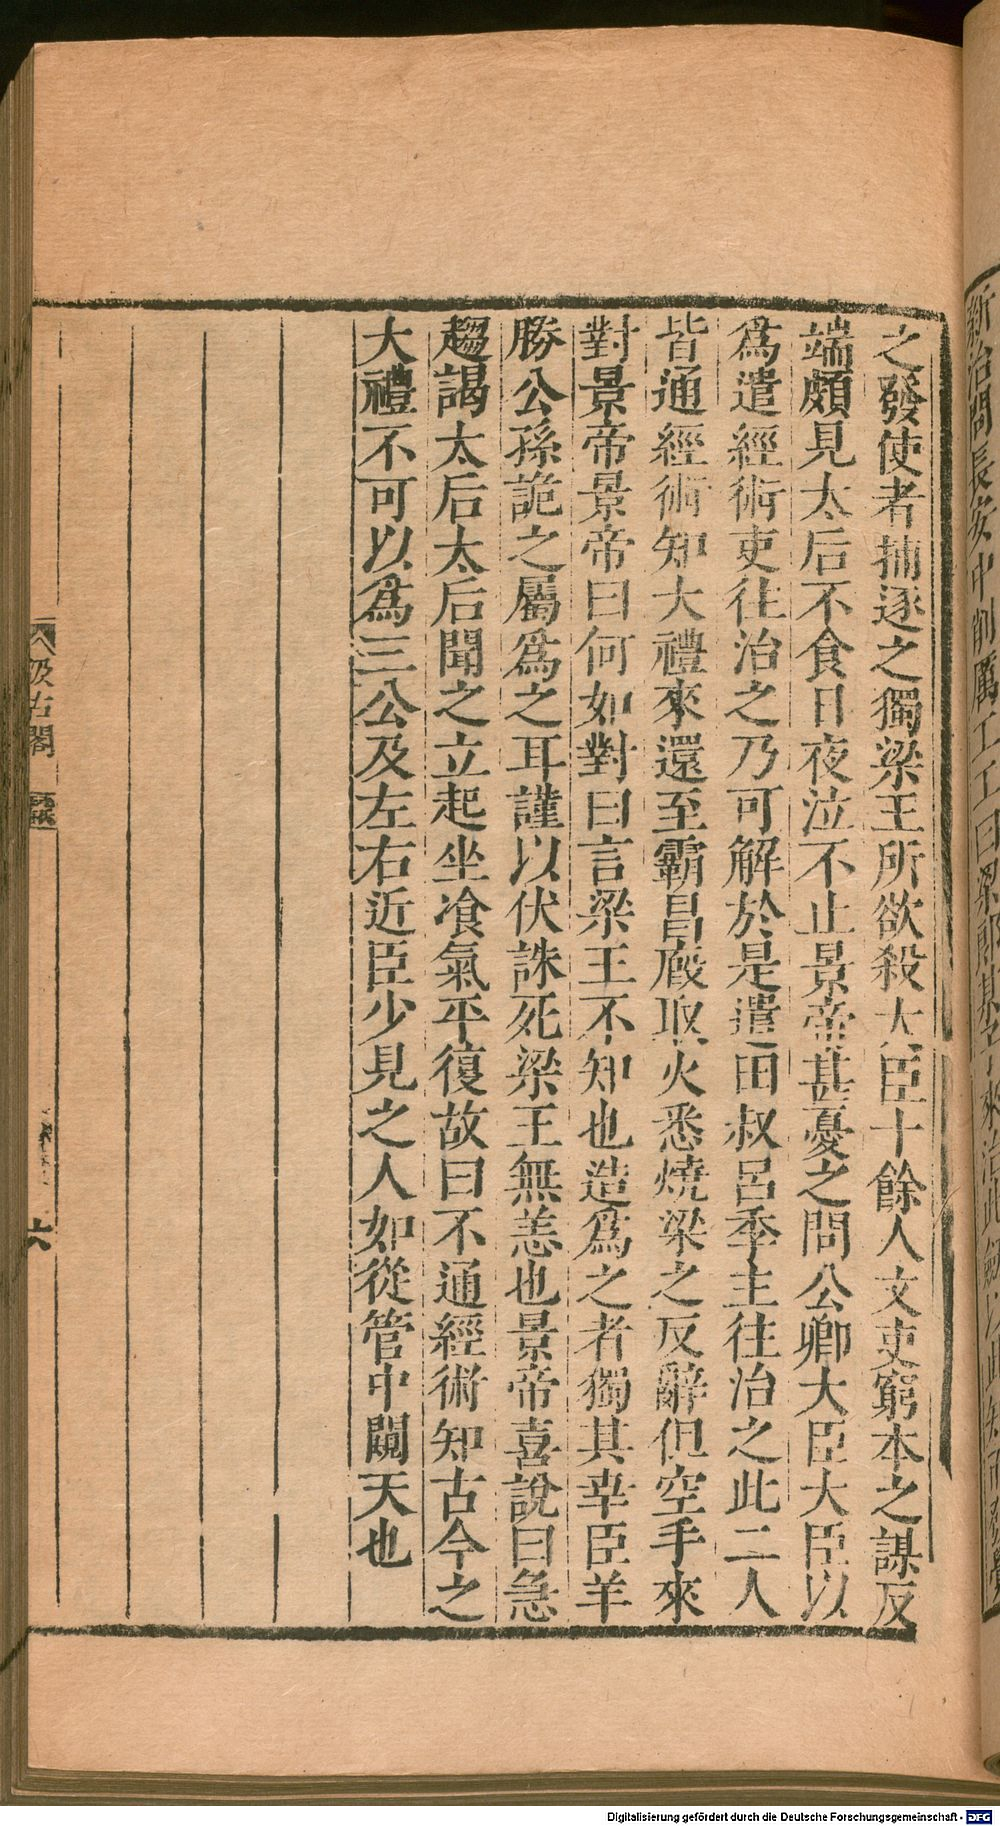 之發使者捕逐之獨梁王所欲殺大臣十餘人文吏窮本之謀反
端頗見太后不食日夜泣不止景帝甚憂之問公卿大臣大臣以
爲遣經術吏往治之乃可解於是遣田叔呂季主往治之此二人
皆通經術知大禮來還至霸昌廄取火悉燒梁之反辭但空手來
對景帝景帝曰何如對曰言梁王不知也造爲之者獨其幸臣羊
勝公孫詭之屬爲之耳謹以伏誅死梁王無恙也景帝喜說曰急
趨謁太后太后聞之立起坐飡氣平復故曰不通經術知古今之
大禮不可以爲三公及左右近臣少見之人如從管中闚天也
汲古閣
六
新治問長安中削厲工工曰梁郎某子來治此劒以此知而發覺
Digitalisierung gefördert durch die Deutsche Forschungsgemeinschaft - DFG